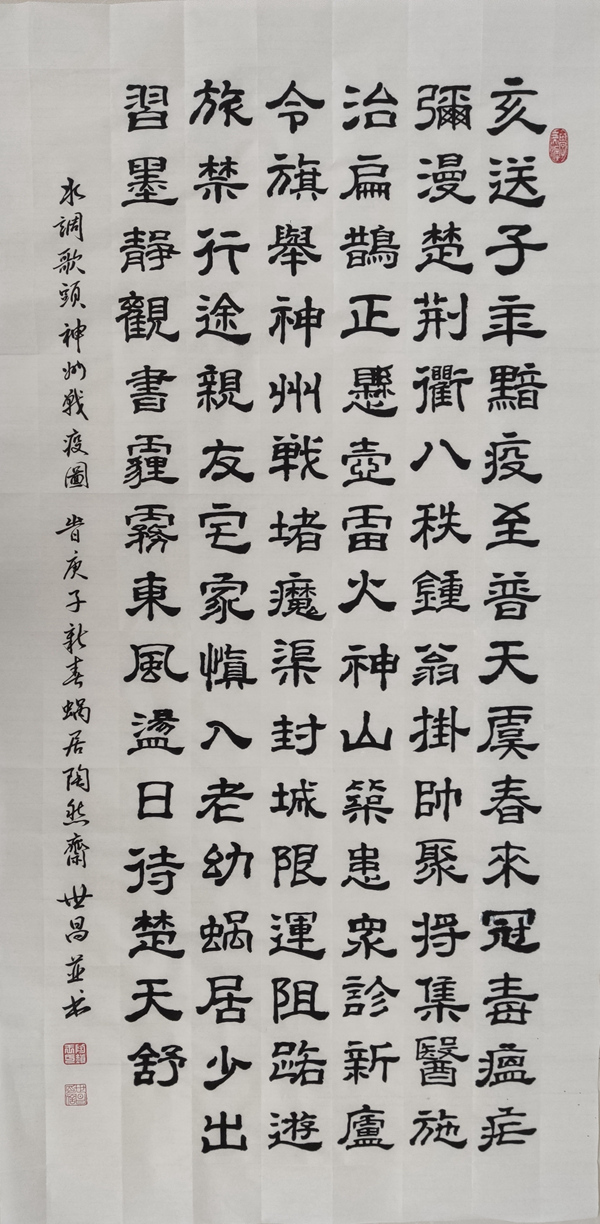 亥送子年黯疫至普天虞春來冠毒瘟疟
彌漫楚荆衢八秩鍾翁掛帥聚将集醫施
治扁鵲正懸壺雷火神山築患衆診新廬
令旗舉神州戰堵魔渠封城限運阻踏遊
旅禁行途親友宅家慎入老幼蝸居少出
習墨静觀書霾霧東風盪日待楚天舒
水調歌頭神州戰疫圖 昔庚子新春蝸居陶然齋世昌並書